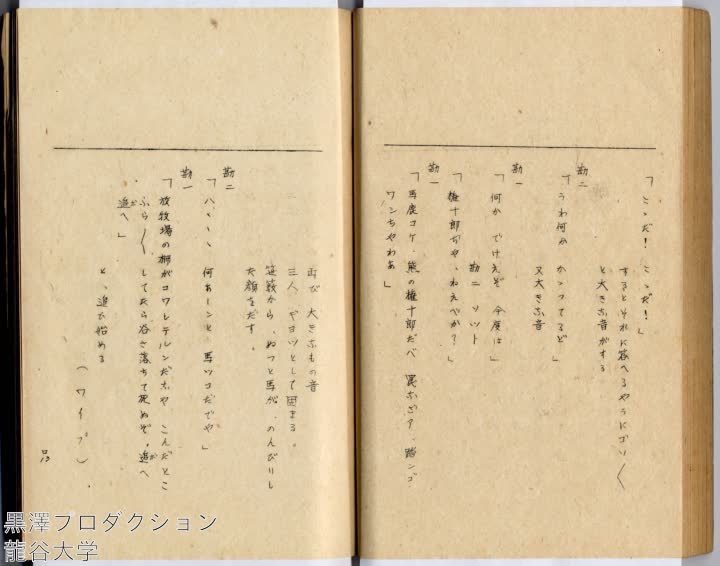 「こゝだ！　こゝだ！」
するとそれに答へるやうにゴソ〱
と大きな音がする
勘二
「うわ何か　かゝつてるど」
又大きな音
勘一
「何か　でけえぞ　今度は」
勘二　ソツト
「権十郎ぢや、ねえべか？」
勘一
「馬鹿コケ、熊の権十郎だべ　罠なざア、踏ンゴ
ワンちやわあ」
再び　大きなもの音
三人、ギヨツとして固まる。
笹藪から、ぬつと馬が、のんびりし
た顔をだす。
勘二
「ハヽヽヽ　何あーンと　馬ツコだでや」
勘一
「放牧場の柵がコワレテルンだなや　こんだとこ
ふら〱してたら谷さ落ちて死ぬぞ、進へ
進へ」
と、進ひ始める
（ワイプ）
黒澤プロダクション
龍谷大学